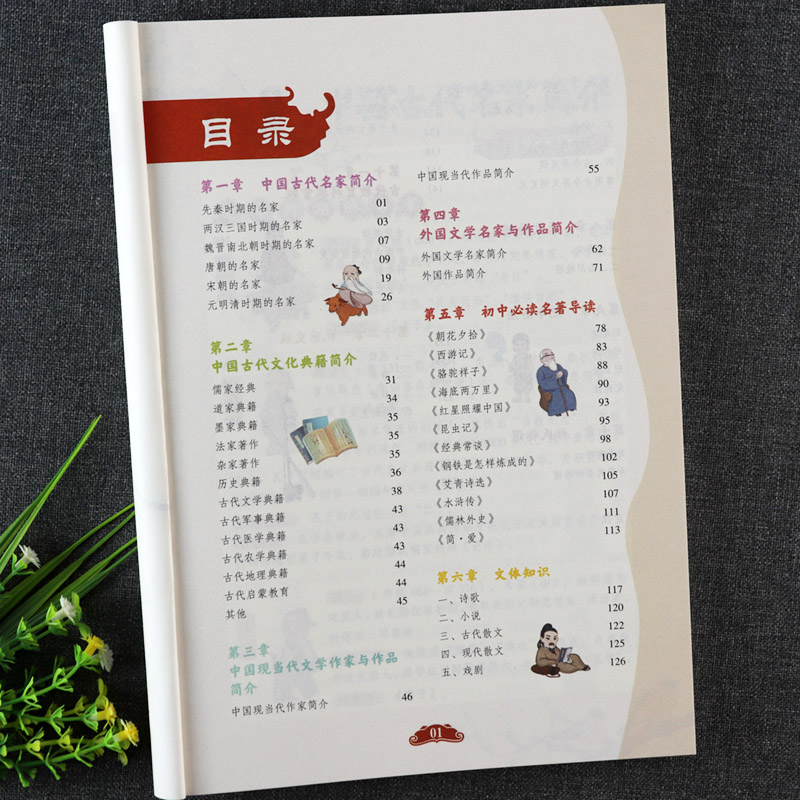 目录
第一章 中国古代名家简介
先秦时期的名家 01
两汉三国时期的名家 03
魏晋南北朝时期的名家 07
唐朝的名家 09
宋朝的名家 19
元明清时期的名家 26
第二章
中国古代文化典籍简介
儒家经典 31
道家典籍 34
墨家典籍 35
法家著作 35
杂家著作 35
历史典籍 36
古代文学典籍 38
古代军事典籍 43
古代医学典籍 43
古代农学典籍 43
古代地理典籍 44
古代启蒙教育 44
其他 45
第三章
中国现当代文学作家与作品
简介
中国现当代作家简介 46
中国现当代作品简介 55
第四章
外国文学名家与作品简介
外国文学名家简介 62
外国作品简介 71
第五章 初中必读名著导读
《朝花夕拾》 78
《西游记》 83
《骆驼祥子》 88
《海底两万里》 90
《红星照耀中国》 93
《昆虫记》 95
《经典常谈》 98
《钢铁是怎样炼成的》 102
《艾青诗选》 105
《水浒传》 107
《儒林外史》 111
《简·爱》 113
第六章 文体知识
一、诗歌 117
二、小说 120
三、古代散文 122
四、现代散文 125
五、戏剧 126
01